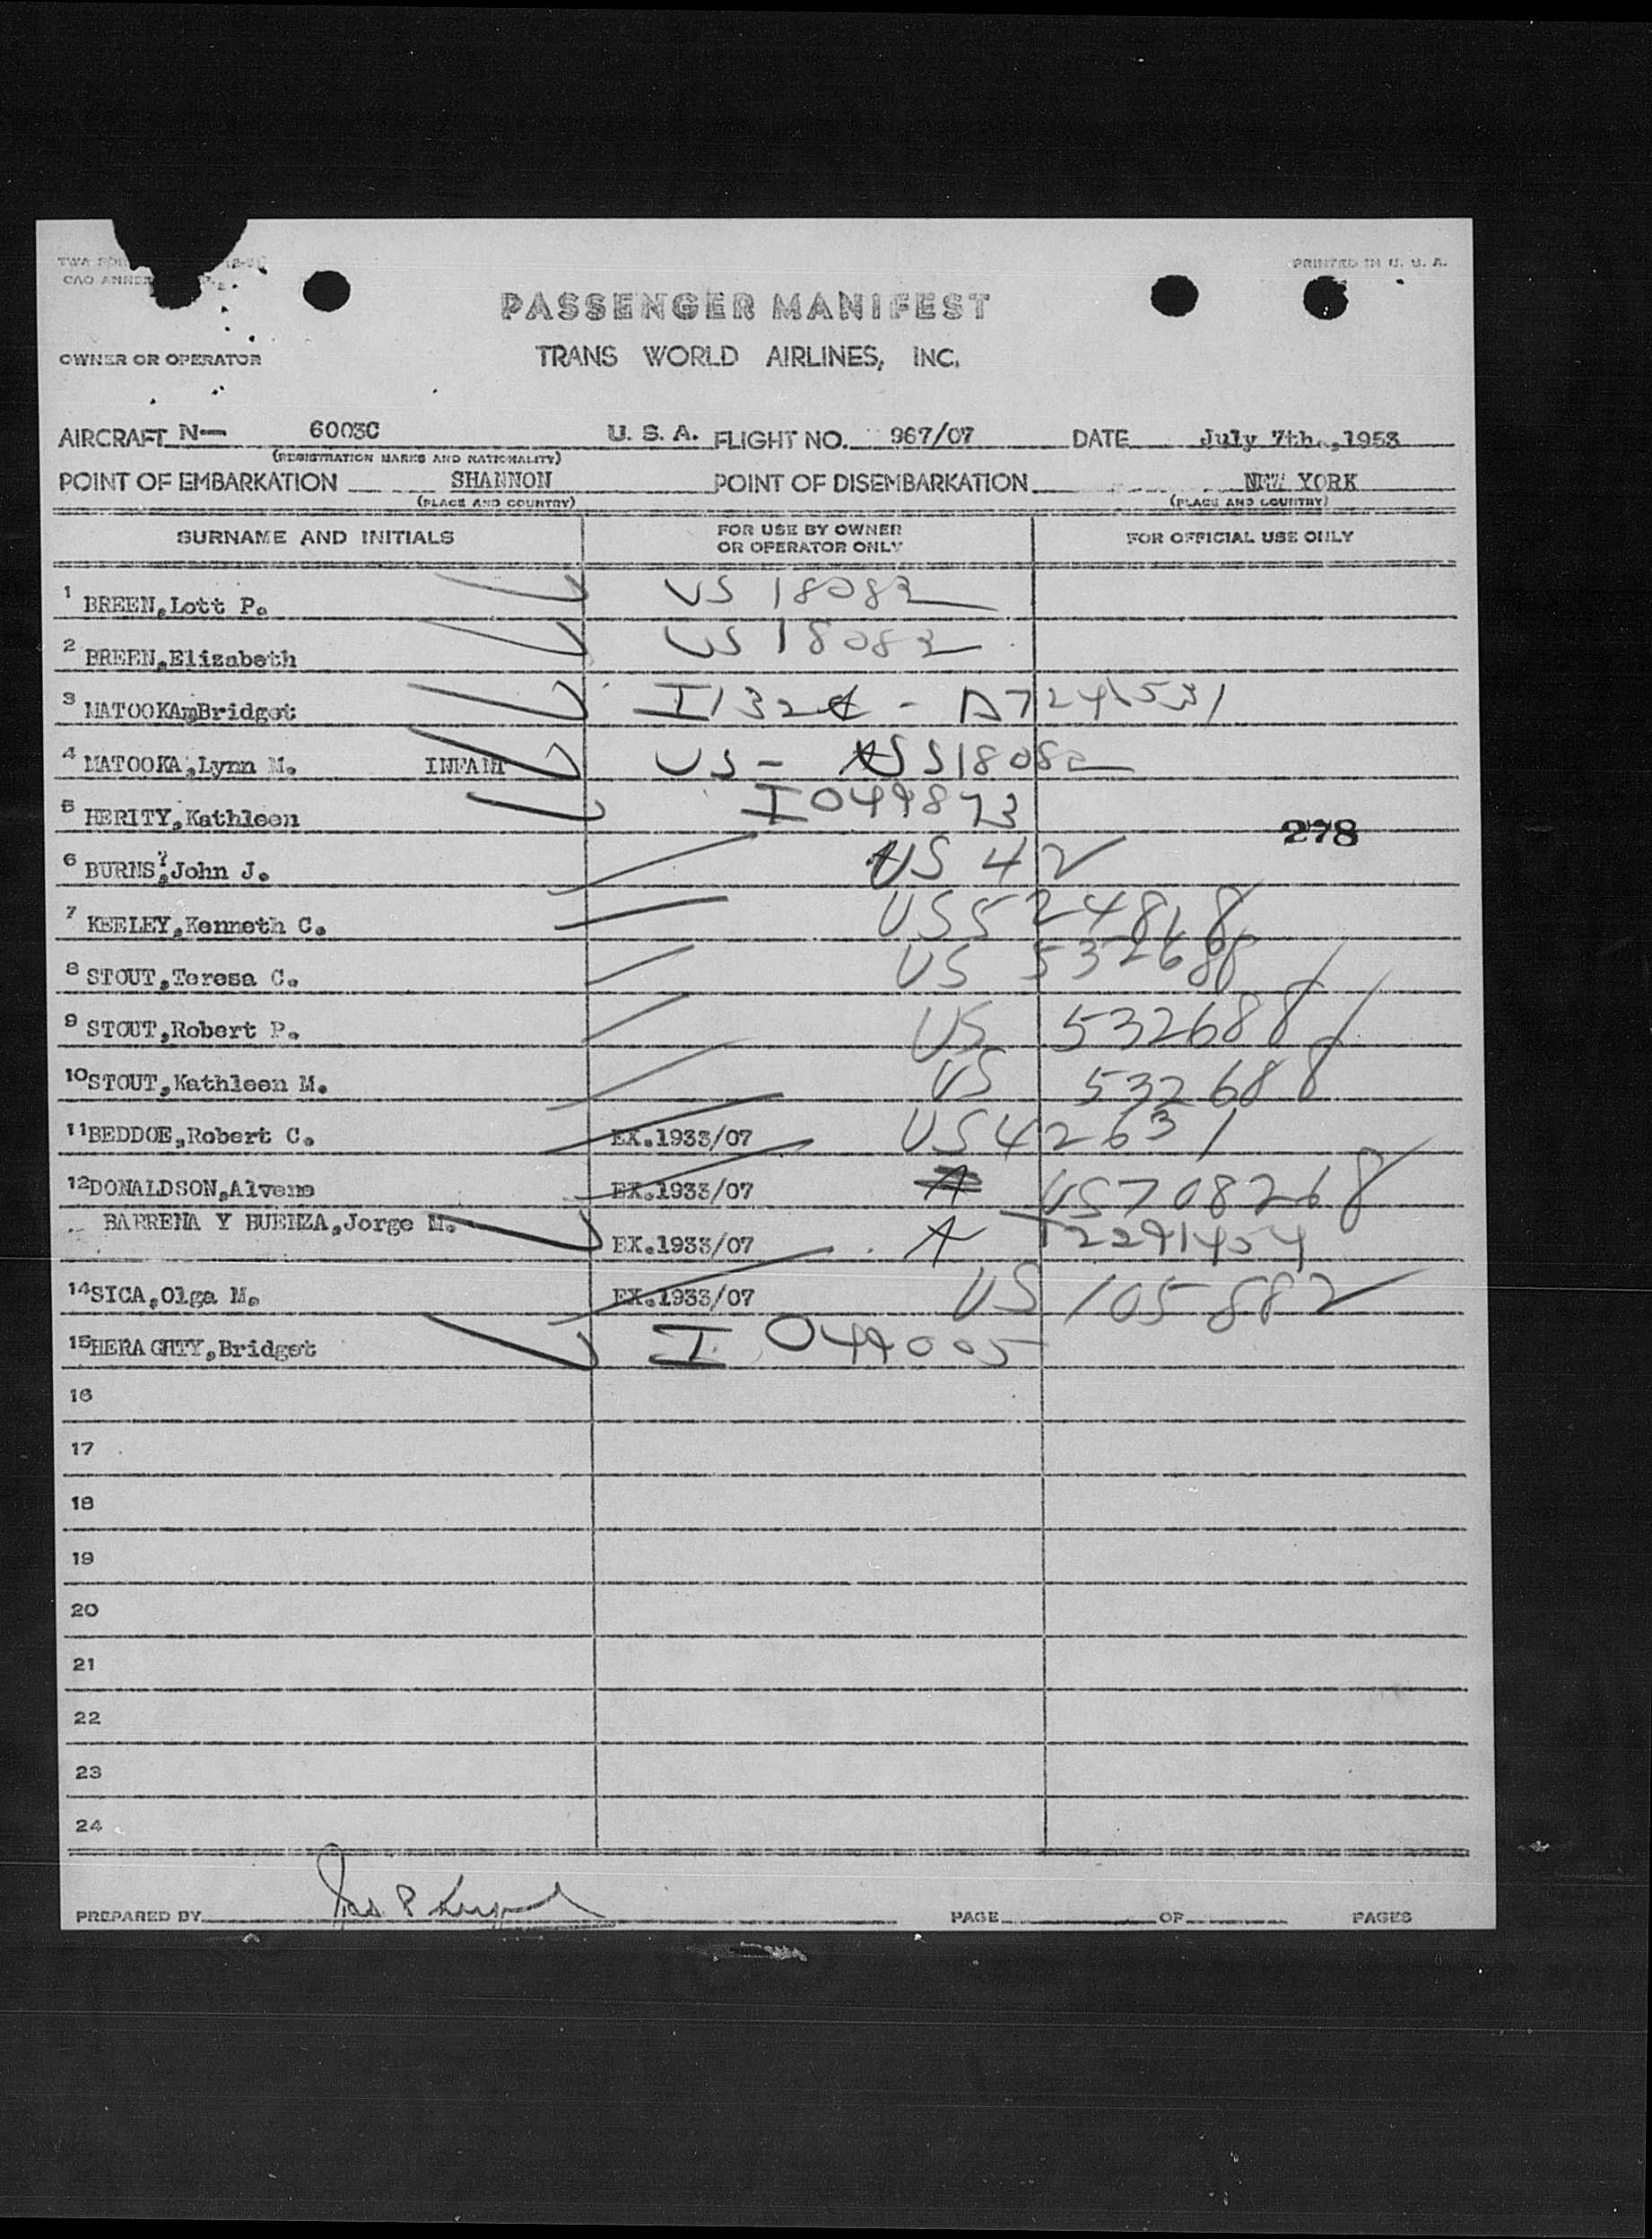 PRINTED IN U. S. A.
PASSENGER MANIFEST
OWNER OR OPERATOR
TRANS WORLD AIRLINES, INC.
AIRCRAFT N— 6003C U. S. A. FLIGHT NO. 967/07 DATE July 7th.,1953
(REGISTRATION MARKS AND NATIONALITY)
POINT OF EMBARKATION SHANNON POINT OF DISEMBARKATION NEW YORK
(PLACE AND COUNTRY) (PLACE AND COUNTRY)
SURNAME AND INITIALS FOR USE BY OWNER OR OPERATOR ONLY FOR OFFICIAL USE ONLY
1 BREEN,Lott P. US 18082
2 BREEN,Elizabeth US 18082
3 MATOOKAmBridget A7241531
4 MATOOKA,Lynn M. INFANT US - S18082
5 HERITY,Kathleen I 049873
278
6 BURNS,John J. US 42
7 KEELEY,Kenneth C. US 524818
8 STOUT,Teresa C. US 532688
9 STOUT,Robert P. US 532688
10 STOUT,Kathleen M. US 532688
11 BEDDOE,Robert C. EX.1933/07 US 42631
12 DONALDSON,Alvene EX.1933/07 US 708268
BARRENA Y BUENZA,Jorge M. EX.1933/07 A T2291454
14 SICA,Olga M. EX.1933/07 US 105882
15 HERAGHTY,Bridget I 049005
16
17
18
19
20
21
22
23
24
PREPARED BY PAGE OF PAGES